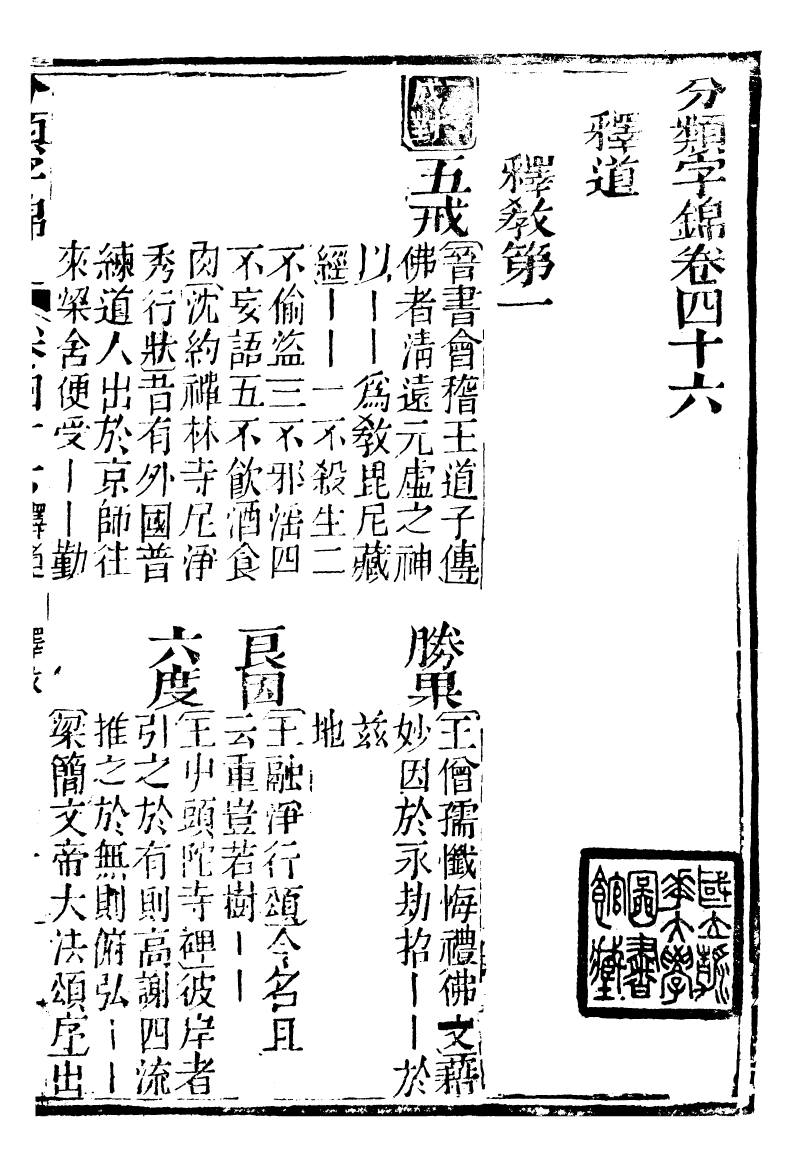 分類字錦卷四十六
釋道
釋教第一
五戒
晉書會稽王道子傳
佛者淸遠元虛之神
以｜｜爲敎毘尼藏
經｜｜一不殺生二
不偷盜三不邪淫四
不妄語五不飮酒食
肉沈約禪林寺尼淨
秀行狀昔有外國普
練道人出於京師往
來梁舍便受｜｜勤
勝果
王僧孺懺悔禮佛文藉
妙因於永劫招｜｜於
兹
地
良因
王融淨行頌今名且
云重豈若樹｜｜
六度
王屮頭陀寺碑彼岸者
引之於有則高謝四流
推之於無則俯弘｜｜
梁簡文帝大法頌序出
國立清華大學圖書館藏
分類字錦
卷四十六釋道
釋敎
一